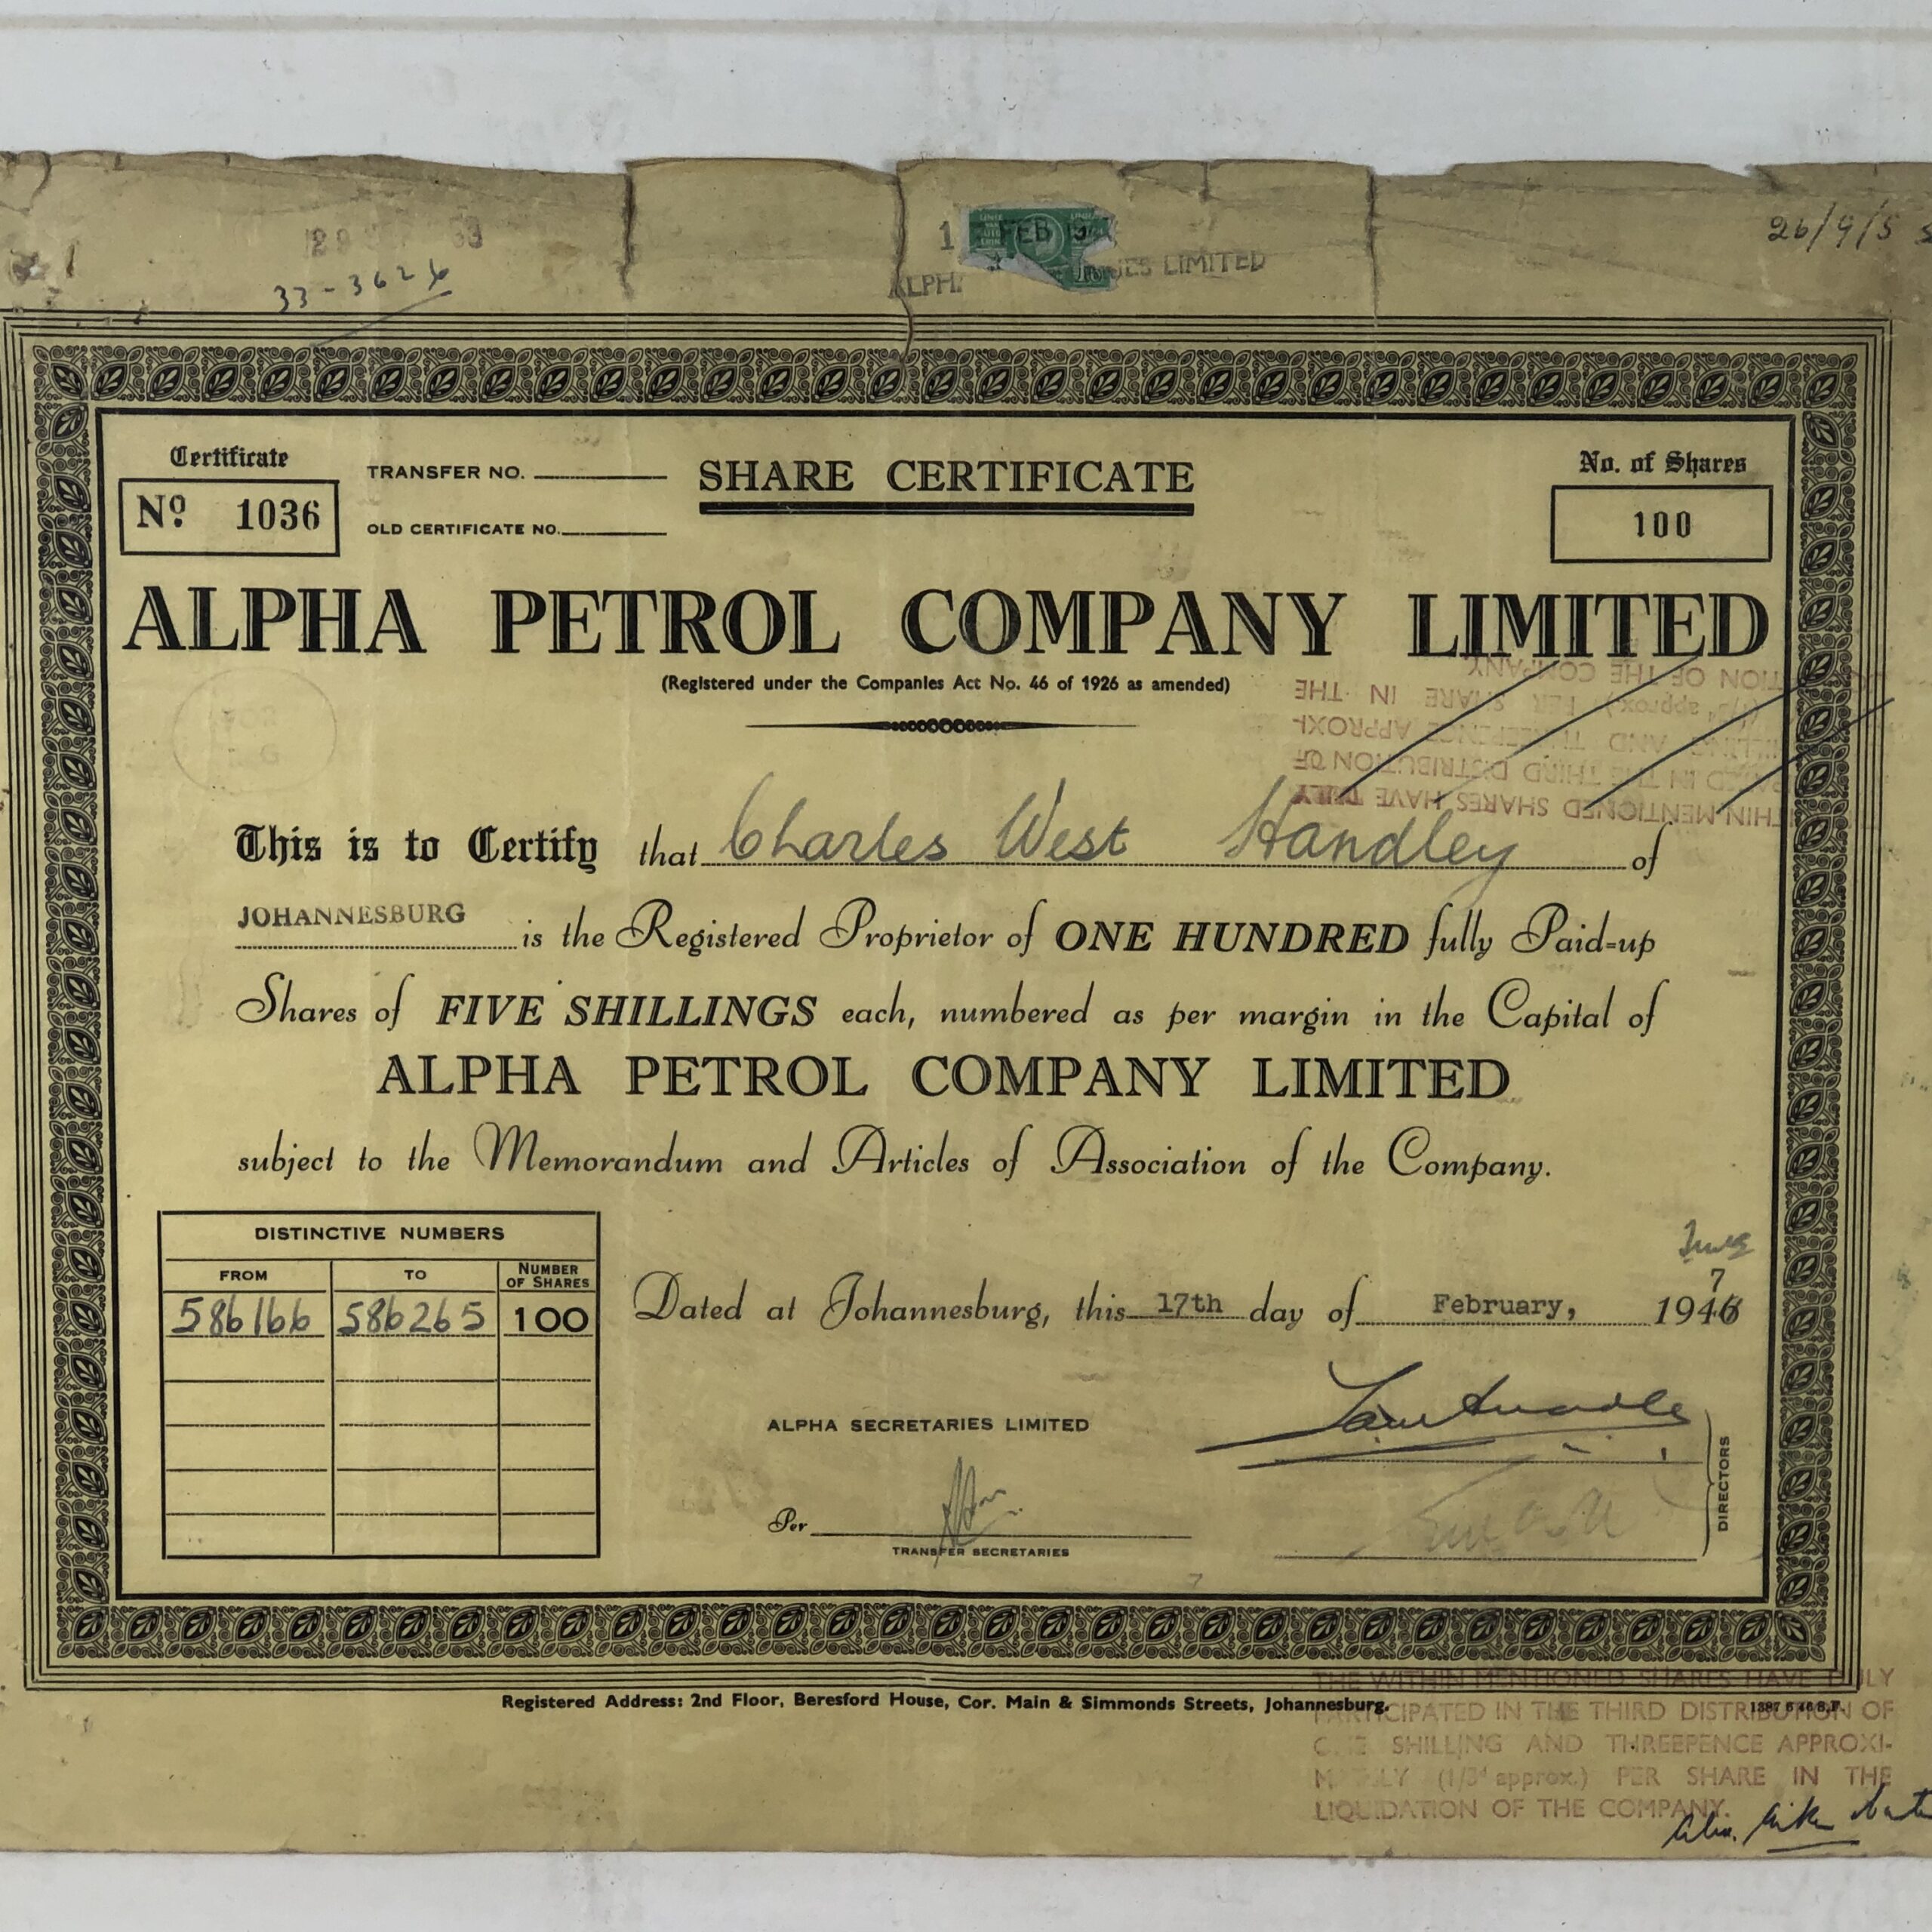 33-3626
26/9/5
1 FEB
ALPH. IES LIMITED
Certificate
No. 1036
TRANSFER NO.
OLD CERTIFICATE NO.
SHARE CERTIFICATE
No. of Shares
100
ALPHA PETROL COMPANY LIMITED
(Registered under the Companies Act No. 46 of 1926 as amended)
THIN MENTIONED SHARES HAVE DULY
IN THE THIRD DISTRIBUTION OF
AND THREEPENCE APPROXI-
(1/3d approx.) PER SHARE IN THE
TION OF THE COMPANY
This is to Certify that Charles West Handley of
JOHANNESBURG is the Registered Proprietor of ONE HUNDRED fully Paid-up
Shares of FIVE SHILLINGS each, numbered as per margin in the Capital of
ALPHA PETROL COMPANY LIMITED
subject to the Memorandum and Articles of Association of the Company.
DISTINCTIVE NUMBERS
FROM TO NUMBER OF SHARES
586166 586265 100
7
Dated at Johannesburg, this 17th day of February, 1946
ALPHA SECRETARIES LIMITED
Per
TRANSFER SECRETARIES
DIRECTORS
Registered Address: 2nd Floor, Beresford House, Cor. Main & Simmonds Streets, Johannesburg.
THE WITHIN MENTIONED SHARES HAVE DULY
PARTICIPATED IN THE THIRD DISTRIBUTION OF
ONE SHILLING AND THREEPENCE APPROXI-
MATELY (1/3d approx.) PER SHARE IN THE
LIQUIDATION OF THE COMPANY.